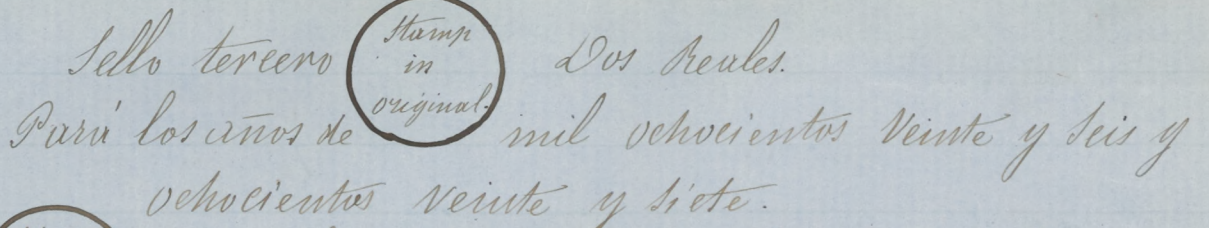 Sello tercero Stamp in original. Dos Reales.
Pará los años de mil ochocientos Veinte y Seis y
ochocientos veinte y siete.